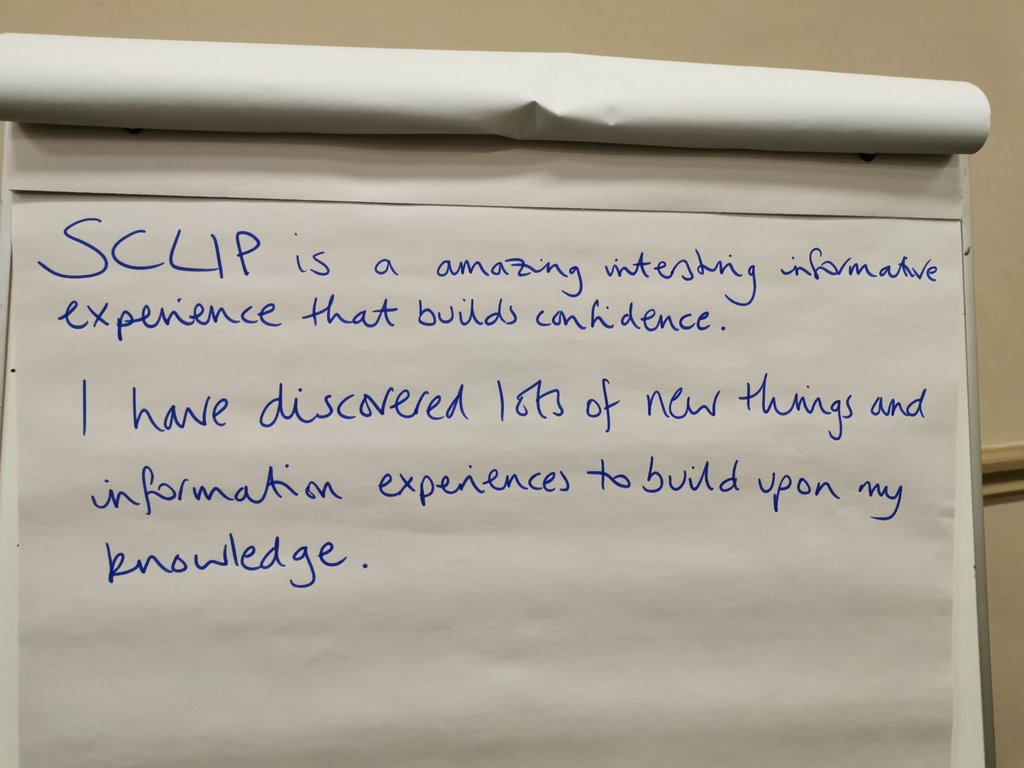 SCLIP is a amazing intersting informative
experience that builds confidence.
I have discovered lots of new things and
information experiences to build upon my
knowledge.